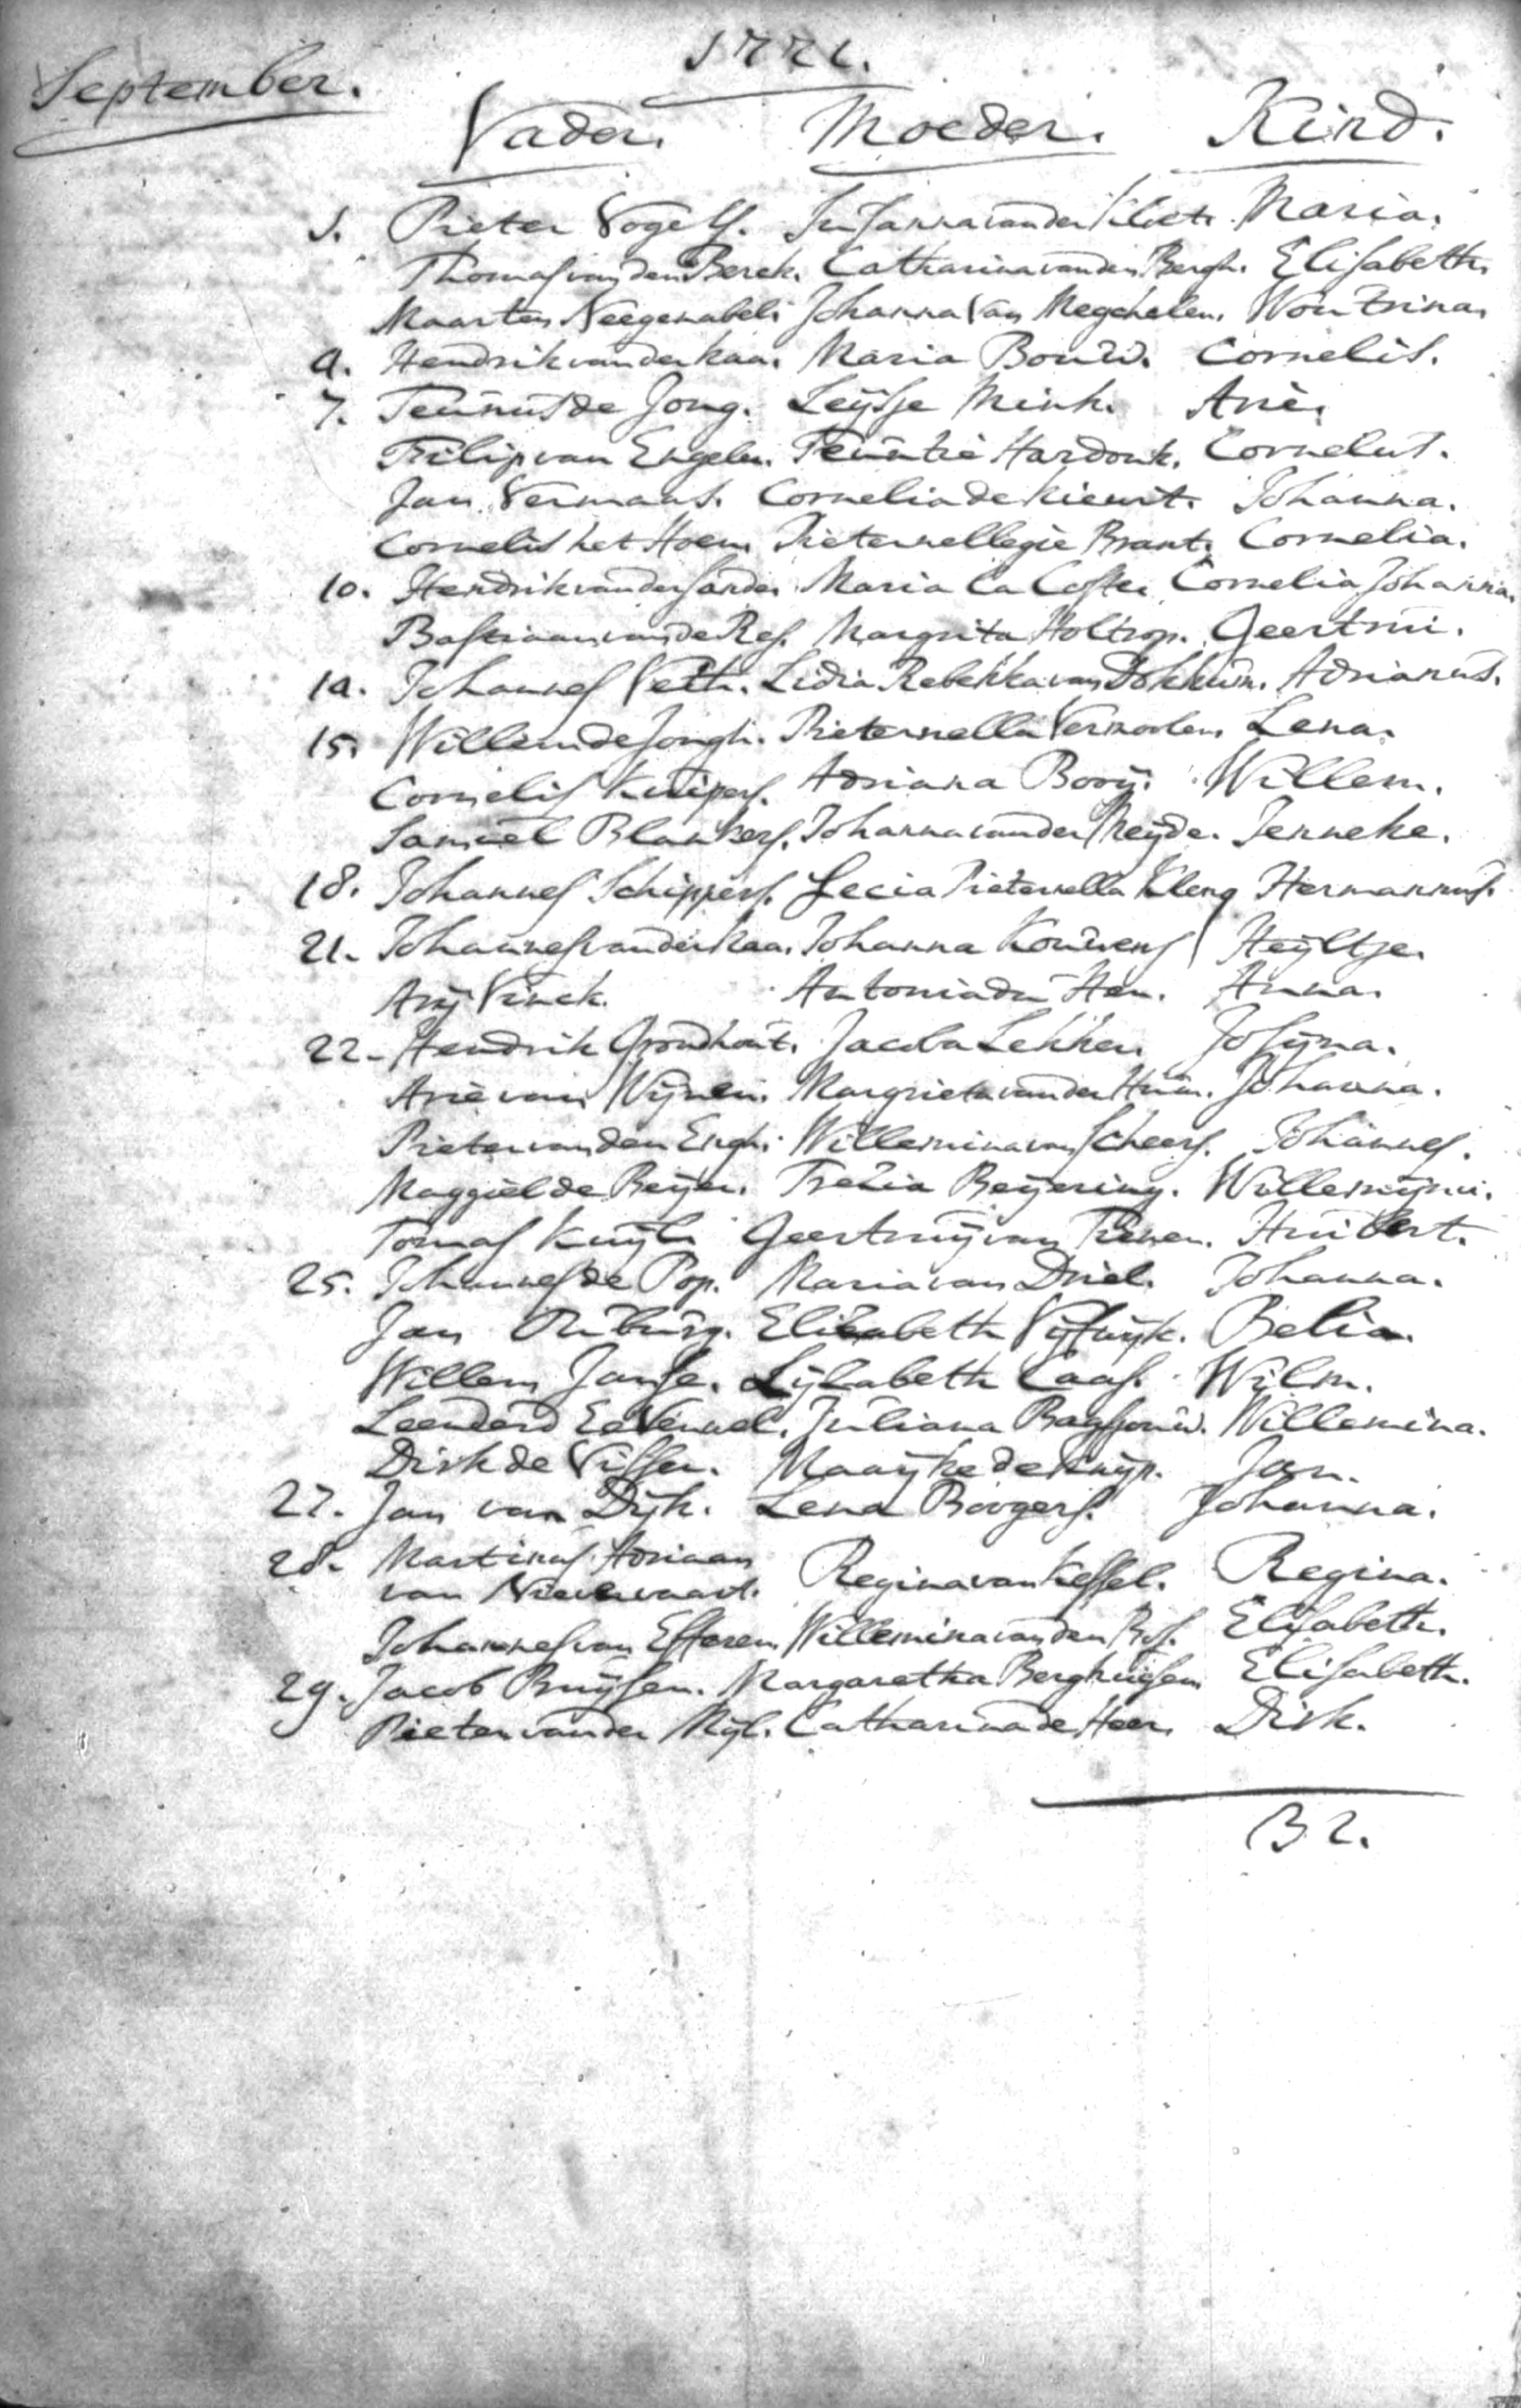 1771.
September.
Vader. Moeder. Kind.
1. Pieter Vogels. Susanna van der Vliet. Maria.
Thomas van den Berck. Catharina van den Bergh. Elisabeth.
Maarten Neegenabels Johanna Van Megchelen. Woutrina.
4. Hendrik van der kaa. Maria Bouw. Cornelis.
7. Teunus de Jong. Leysje Mink. Arie.
Filip van Engelen. Teuntie Hardonk. Cornelus.
Jan Vermaas. Cornelia de kiewit. Johanna.
Cornelis het Hoen. Pieternellegie Brant. Cornelia.
10. Hendrik van der sanden Maria La Coste. Cornelia Johanna.
Bastiaan van de Res. Margrita Holtrop. Geertrui.
14. Johannes Veth. Lidia Rebekka van Dokkum. Adrianus.
15. Willem de Jongh. Pieternella Vermoolen. Lena.
Cornelis Kuipers. Adriana Booy. Willem.
Samuel Blankers. Johanna van der Meyde. Jenneke.
18. Johannes Schippers. Lecia Pieternella Kleng Hermannus.
21. Johannes van der kaa. Johanna Kouwens Heyltje.
Ary Vinck. Antonia den Hen. Anna.
22. Hendrik Groudhout. Jacoba Lekker. Josyna.
Arie van Wynen. Margrieta van der Huin. Johanna.
Pieter van den Engh. Willemina van Scheers. Johannes.
Maggiel de Beyer. Trezia Beyering. Willemyna.
Tomas Kuyl. Geertruy van Tienen. Huibert.
25. Johannes de Pop. Maria van Driel. Johanna.
Jan Ouburg. Elizabeth Vyfwyk. Belia.
Willem Janse. Lysabeth Caas. Wilm.
Leenderd Eevenwel. Juliana Bagsjouw. Willemina.
Dirk de Visser. Maayke de Kuyp. Jan.
27. Jan van Dyk. Lena Borgers. Johanna.
28. Martinus Adriaan
van Nievervaart. Regina van Kessel. Regina.
Johannes van Efferen. Willemina van den Bos. Elisabeth.
29. Jacob Buysen. Margaretha Berghuysen Elisabeth.
Pieter van der Myl. Catharina de Heer. Dirk.
32.